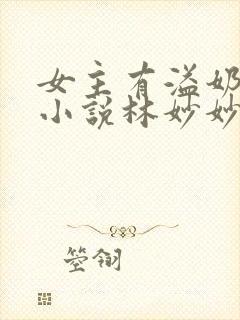 女主有溢奶
小说林妙妙
箜翎